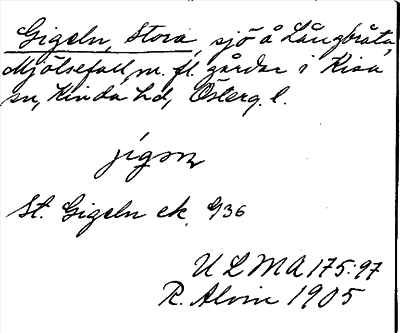 Gigeln, Stora, sjö å Långbråta,
Mjölsefall, m. fl. gårdar i Kisa
sn, Kinda hd, Österg. l.
jigon
St. Gigeln ek. G36
ULMA 175:97
R. Alvin 1905